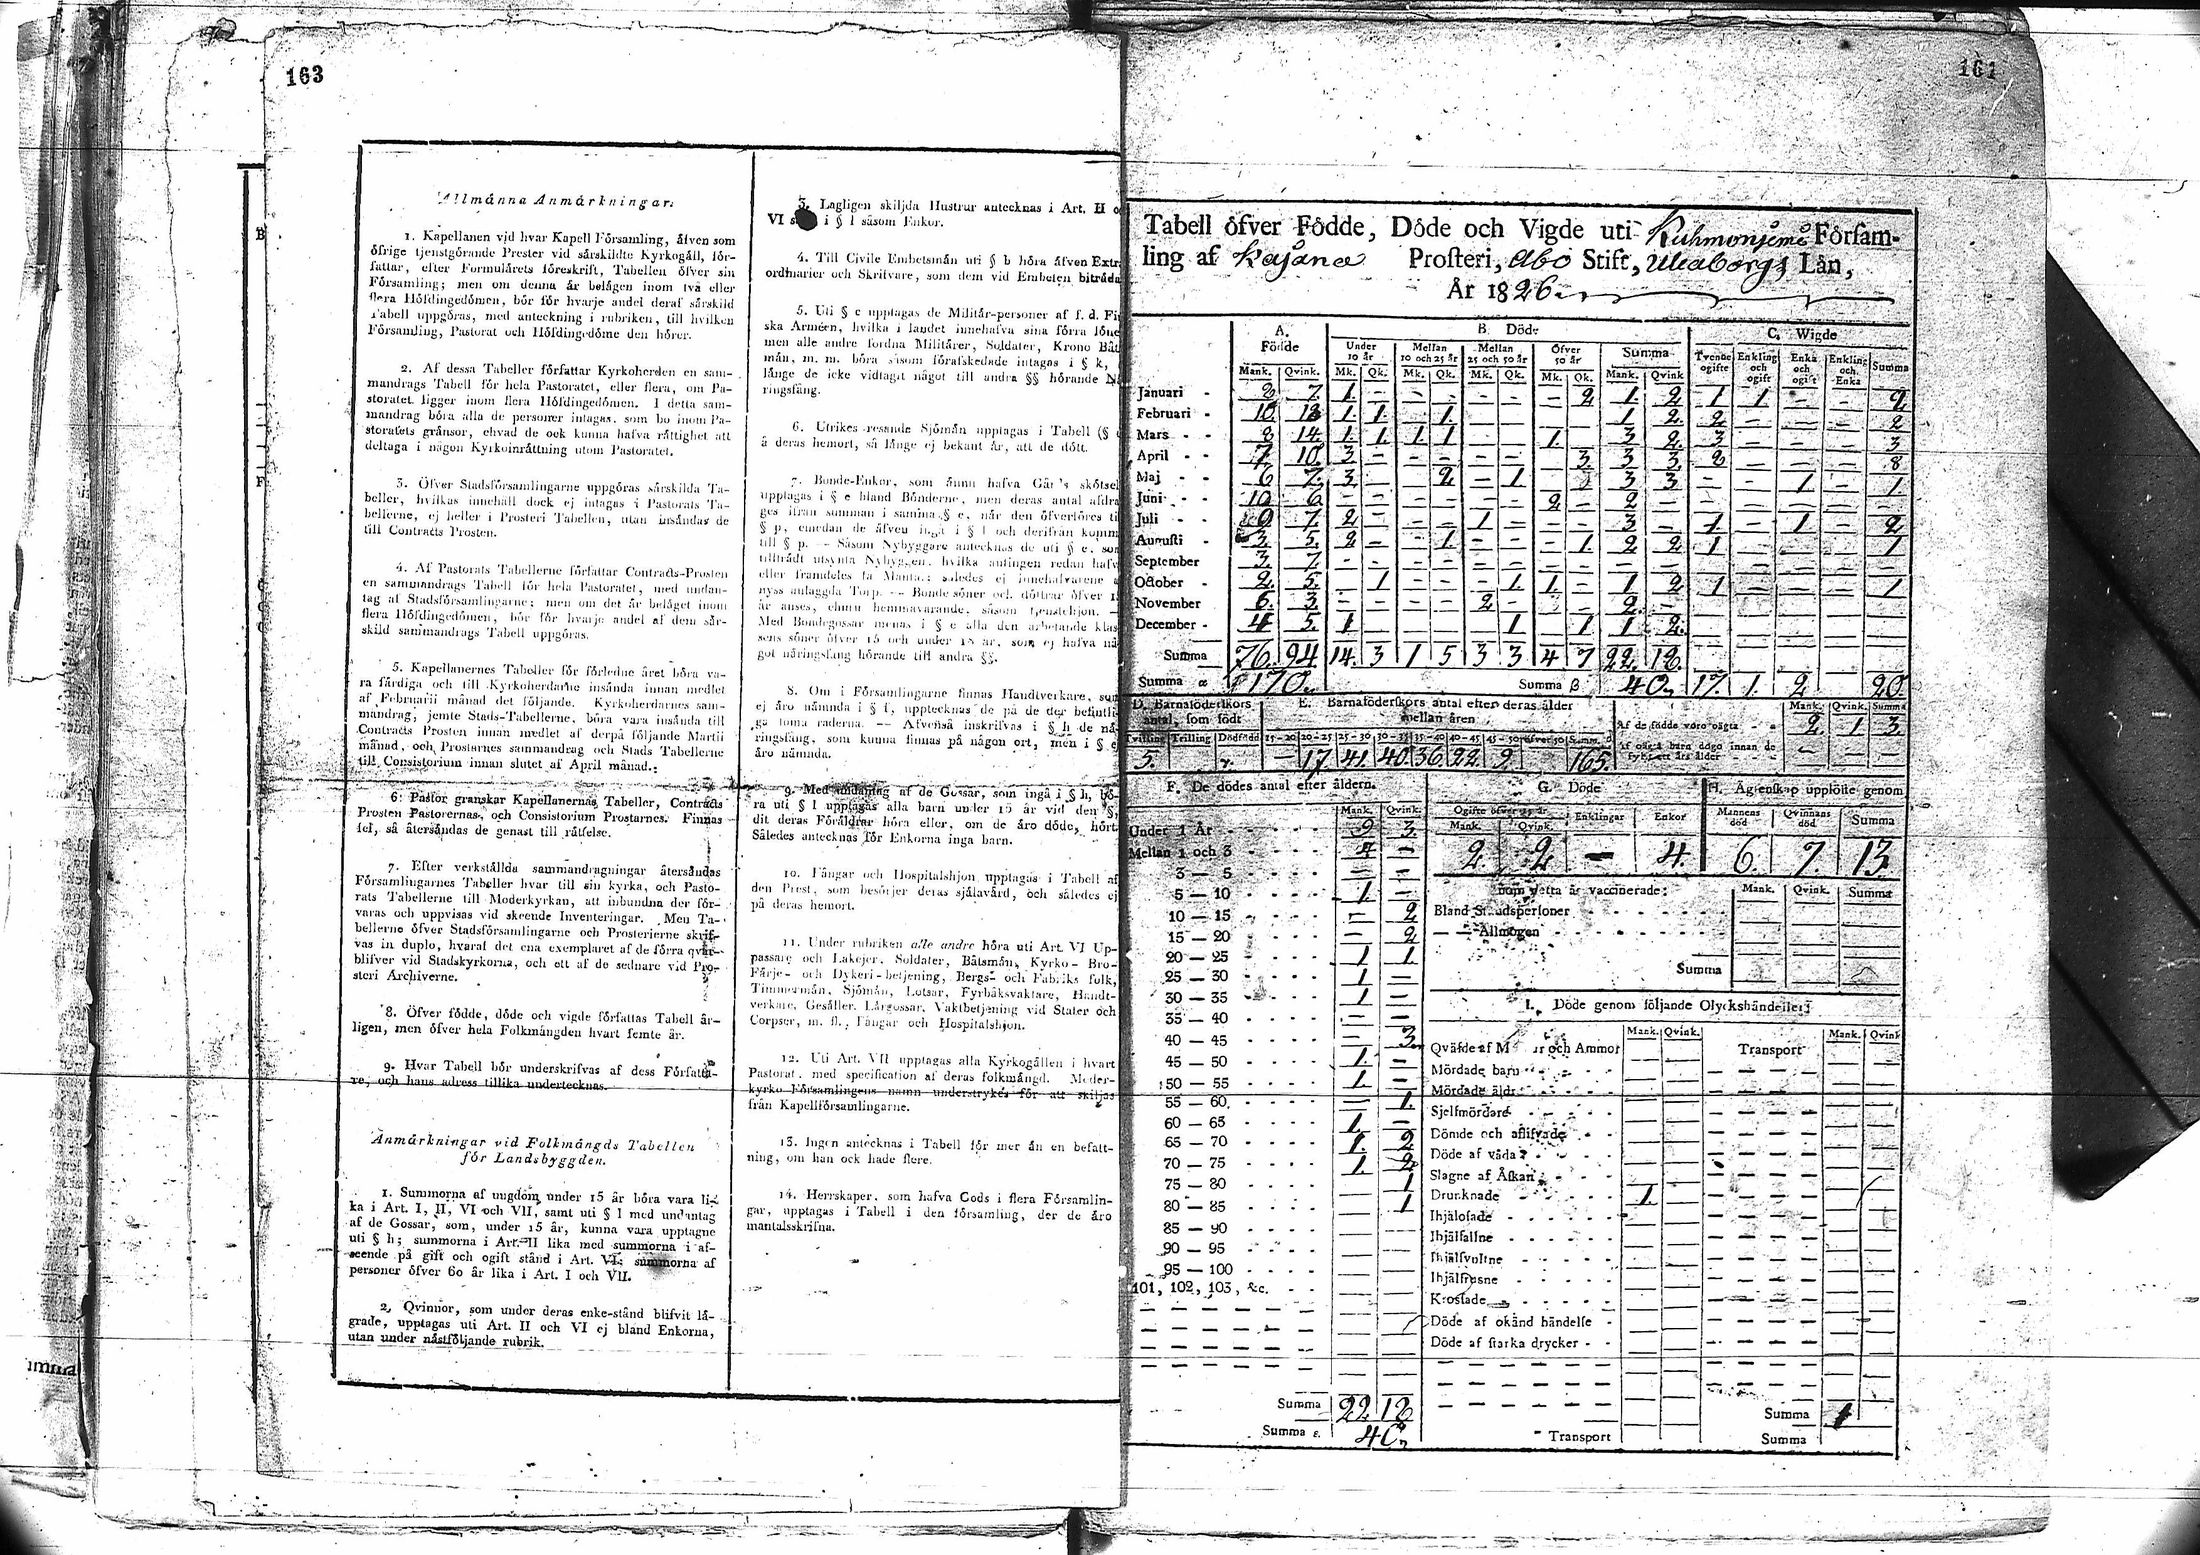 163
Allmänna Anmärkningar.
1. Kapellanen vid hvar Kapell Församling, åfven som
öfrige tjenstgörande Prester vid sårskildte Kyrkogåll, för-
fattar, efter Formulårets föreskrift, Tabellen öfver sin
Församling; men om denna år belågen inom två eller
flera Höfdingedömen, bör för hvarje andel deraf sårskild
Tabell uppgöras, med anteckning i rubriken, till hvilken
Församling, Pastorat och Höfdingedöme den hörer.
2. Af dessa Tabeller författar Kyrkoherden en sam-
mandrags Tabell för hela Pastoratet, eller flera, om Pa-
storatet ligger inom flera Höfdingedömen. I detta sam-
mandrag böra alla de personer intagas, som bo inom Pa-
storatets grånsor, ehvad de ock kunna hafva råttighet att
deltaga i någon Kyrkoinråttning utom Pastoratet.
3. Öfver Stadsförsamlingarne uppgöras sårskilda Ta-
beller, hvilkas innehåll dock ej intages i Pastorats Ta-
bellerne, ej heller i Prosteri Tabellen, utan insåndas de
till Contracts Prosten.
4. Af Pastorats Tabellerne författar Contracts-Prosten
en sammandrags Tabell för hela Pastoratet, med undan-
tag af Stadsförsamlingarne; men om det år belåget inom
flera Höfdingedömen, bör för hvarje andel af dem sår-
skild sammandrags Tabell uppgöras.
5. Kapellanernes Tabeller för förledne året böra va-
ra fårdiga och till Kyrkoherdarne insånda innan medlet
af Februarii månad det följande. Kyrkoherdarnes sam-
mandrag, jemte Stads-Tabellerne, böra vara insånda till
Contracts Prosten innan medlet af derpå följande Martii
månad, och Prostarnes sammandrag och Stads Tabellerne
till Consistorium innan slutet af April månad.
6. Pastor granskar Kapellanernas Tabeller, Contracts
Prosten Pastorernas, och Consistorium Prostarnes. Finnas
fel, så återsåndas de genast till råttelse.
7. Efter verkstållda sammandragningar återsåndas
Församlingarnes Tabeller hvar till sin kyrka, och Pasto-
rats Tabellerne till Moderkyrkan, att inbundna der för-
varas och uppvisas vid skeende Inventeringar. Men Ta-
bellerne öfver Stadsförsamlingarne och Prosterierne skrif-
vas in duplo, hvaraf det ena exemplaret af de förra qvar-
blifver vid Stadskyrkorna, och ett af de sednare vid Pro-
steri Archiverne.
8. Öfver födde, döde och vigde författas Tabell år-
ligen, men öfver hela Folkmångden hvart femte år.
9. Hvar Tabell bör underskrifvas af dess Författa-
re, och hans adress tillika undertecknas.
Anmärkningar vid Folkmängds Tabellen
för Landsbyggden.
1. Summorna af ungdom under 15 år böra vara li-
ka i Art. I, II, VI och VII, samt uti § l med undantag
af de Gossar, som, under 15 år, kunna vara upptagne
uti § h; summorna i Art. II lika med summorna i af-
seende på gift och ogift stånd i Art. VI; summorna af
personer öfver 60 år lika i Art. I och VII.
2. Qvinnor, som under deras enke-stånd blifvit lå-
grade, upptagas uti Art. II och VI ej bland Enkorna,
utan under nåstföljande rubrik.
3. Lagligen skiljda Hustrur antecknas i Art. II
VI i § l såsom Enkor.
4. Till Civile Embetsmån uti § b höra åfven Extr
ordinarier och Skrifvare, som dem vid Embeten bitråda
5. Uti § c upptagas de Militår-personer af f. d. Fi
ska Armeen, hvilka i landet innehafva sina förra löne
men alle andre fordna Militårer, Soldater, Krono Båt
mån, m. m. böra såsom förafskedade intagas i § k,
långe de icke vidtagit något till andra §§ hörande
ringsfång.
6. Utrikes resande Sjömån upptagas i Tabell
å deras hemort, så långe ej bekant år, att de dött.
7. Bonde-Enkor, som ånnu hafva Går's skötsel
upptagas i § e bland Bönderne, men deras antal afdra
ges ifrån summan i samma § e, når den öfverföres
§ p, emedan de åfven ingå i § l och derifrån komm
till § p. – Såsom Nybyggare antecknas de uti § e, som
tilltrådt utsynta Nybyggen, hvilka antingen redan hafv
eller framdeles få Mantal; således ej innehafvarene
nyss anlaggda Torp. — Bonde söner och döttrar öfver
år anses, ehuru hemmavarande, såsom tjenstehjon. —
Med Bondegossar menas i § e alla den arbetande klas
sens söner öfver 15 och under 18 år, som ej hafva nå
got nåringsfång hörande till andra §§.
8. Om i Församlingarne finnas Handtverkare, som
ej åro nåmnda i § f, upptecknas de på de der befintli
ga toma raderna. — Afvenså inskrifvas i § h de nå
ringsfång, som kunna finnas på någon ort, men i § ej
åro nåmnda.
9. Med undantag af de Gossar, som ingå i § h, bö
ra uti § l upptagas alla barn under 15 år vid den §,
dit deras Föråldrar höra eller, om de åro döde, hört.
Således antecknas för Enkorna inga barn.
10. Fångar och Hospitalshjon upptagas i Tabell af
den Prest, som besörjer deras sjålavård, och således ej
på deras hemort.
11. Under rubriken alle andre höra uti Art. VI Up-
passare och Lakejer, Soldater, Båtsmån, Kyrko- Bro-
Fårje- och Dykeri-betjening, Bergs- och Fabriks folk,
Timmermån, Sjömån, Lotsar, Fyrbåksvaktare, Handt-
verkare, Gesåller, Lårgossar, Vaktbetjening vid Stater och
Corpser, m. fl., Fångar och Hospitalshjon.
12. Uti Art. VII upptagas alla Kyrkogållen i hvart
Pastorat, med specification af deras folkmångd. Moder-
kyrko Församlingens namn understrykes för att skiljas
från Kapellförsamlingarne.
13. Ingen antecknas i Tabell för mer ån en befatt-
ning, om han ock hade flere.
14. Herrskaper, som hafva Gods i flera Församlin-
gar, upptagas i Tabell i den församling, der de åro
mantalsskrifna.
161
Tabell öfver Födde, Döde och Vigde uti Kuhmoniemi Försam-
ling af Kajana Prosteri, Åbo Stift, Uleåborgs Län,
År 1826.
A. Födde B. Döde C. Wigde
Under 10 år Mellan 10 och 25 år Mellan 25 och 50 år Öfver 50 år Summa Tvenne ogifte Enkling och ogift Enka och ogift Enkling och Enka Summa
Mank. Qvink. Mk. Qk. Mk. Qk. Mk. Qk. Mk. Qk. Mank. Qvink
Januari - 8 7. 1. - - - - - - 2 1. 2 1 1 - - 2
Februari - 10. 18 1. 1. - 1. 1 2. 2 - - - 2
Mars - - 8 14. 1. 1. 1. 1 1. 3 2. 3 - - - 3
April - - 7 10. 3 - - - - - - 3. 3 3. 8 - - - 8
Maj - - 6 7. 3. - - 2 - 1 3 3 - - 1 - 1.
Juni - - 10 6. - - - - - - 2 - 2 -
Juli - - 9. 7. 2 - - - 1 - - - 3 - 1. - 1 - 2
Augusti - 3. 5. 2 - - 1. - - - 1. 2 2 1 - - - 1
September 3. 7. - - - - - - - - - -
October - 2. 5. - 1 - - - 1. 1. - 1 2 1 - - - 1
November 6. 3. - - - - 2 - - - 2. -
December - 4 5. 1 - - - - 1 - 1 1 2.
Summa 76. 94 14. 3 1 5 3 3 4 7 22. 18.
Summa α 170. Summa β 40. 17. 1. 2 20.
D. Barnaföderskors antal, som födt E. Barnaföderskors antal efter deras ålder mellan åren Mank. Qvink. Summa
Tvilling Trilling Dödfödd 15-20 20-25 25-30 30-35 35-40 40-45 45-50 öfver 50 Summ. δ
Af de födde voro oägta - - 2. 1 3.
5. - 17. 41. 40. 36. 22. 9. 165.
F. De dödes antal efter åldern. G. Döde H. Ägtenskap upplöste genom
Mank. Qvink. Ogifte öfver 25 år Enklingar Enkor Mannens död Qvinnans död Summa
Mank. Qvink.
2. 2 - 4. 6. 7. 13.
Under 1 År - - - - 9 3.
Mellan 1 och 3 - - - - 4 -
3 — 5 - - - - - -
5 — 10 - - - - 1. -
10 — 15 - - - - - 2
15 — 20 - - - - - 2
20 — 25 - - - - 1 1.
25 — 30 - - - - 1 -
30 — 35 - - - - 1 -
35 — 40 - - - - - -
40 — 45 - - - - - 3.
45 — 50 - - - - 1. -
50 — 55 - - - - 1. -
55 — 60. - - - - - 1.
60 — 65 - - - - 1. -
65 — 70 - - - - 1. 2
70 — 75 - - - - 1. 2
75 — 80 - - - - 1
80 — 85 - - - - 1
85 — 90 - - - -
90 — 95 - - - -
95 — 100 - - - -
101, 102, 103, &c. - -
Summa 22 18
Summa ε. 40.
Som detta år vaccinerade: Mank. Qvink. Summa
Bland Ståndspersoner - - - - - -
— — Allmogen - - - - - -
Summa
I. Döde genom följande Olyckshändelser:
Mank. Qvink. Transport Mank. Qvink
Qväfde af M och Ammor
Mördade barn - - - -
Mördade äldr
Sjelfmördare - - - -
Dömde och aflifvade - -
Döde af våda - - - -
Slagne af Åskan - - - -
Drunknade - - - - 1.
Ihjälofade - - - - -
Ihjälfallne - - - - -
Ihjälsvultne - - - -
Ihjälfrusne - - - - -
Krossade - - - - -
Döde af okänd händelse -
Döde af starka drycker - -
Summa 1
Transport Summa